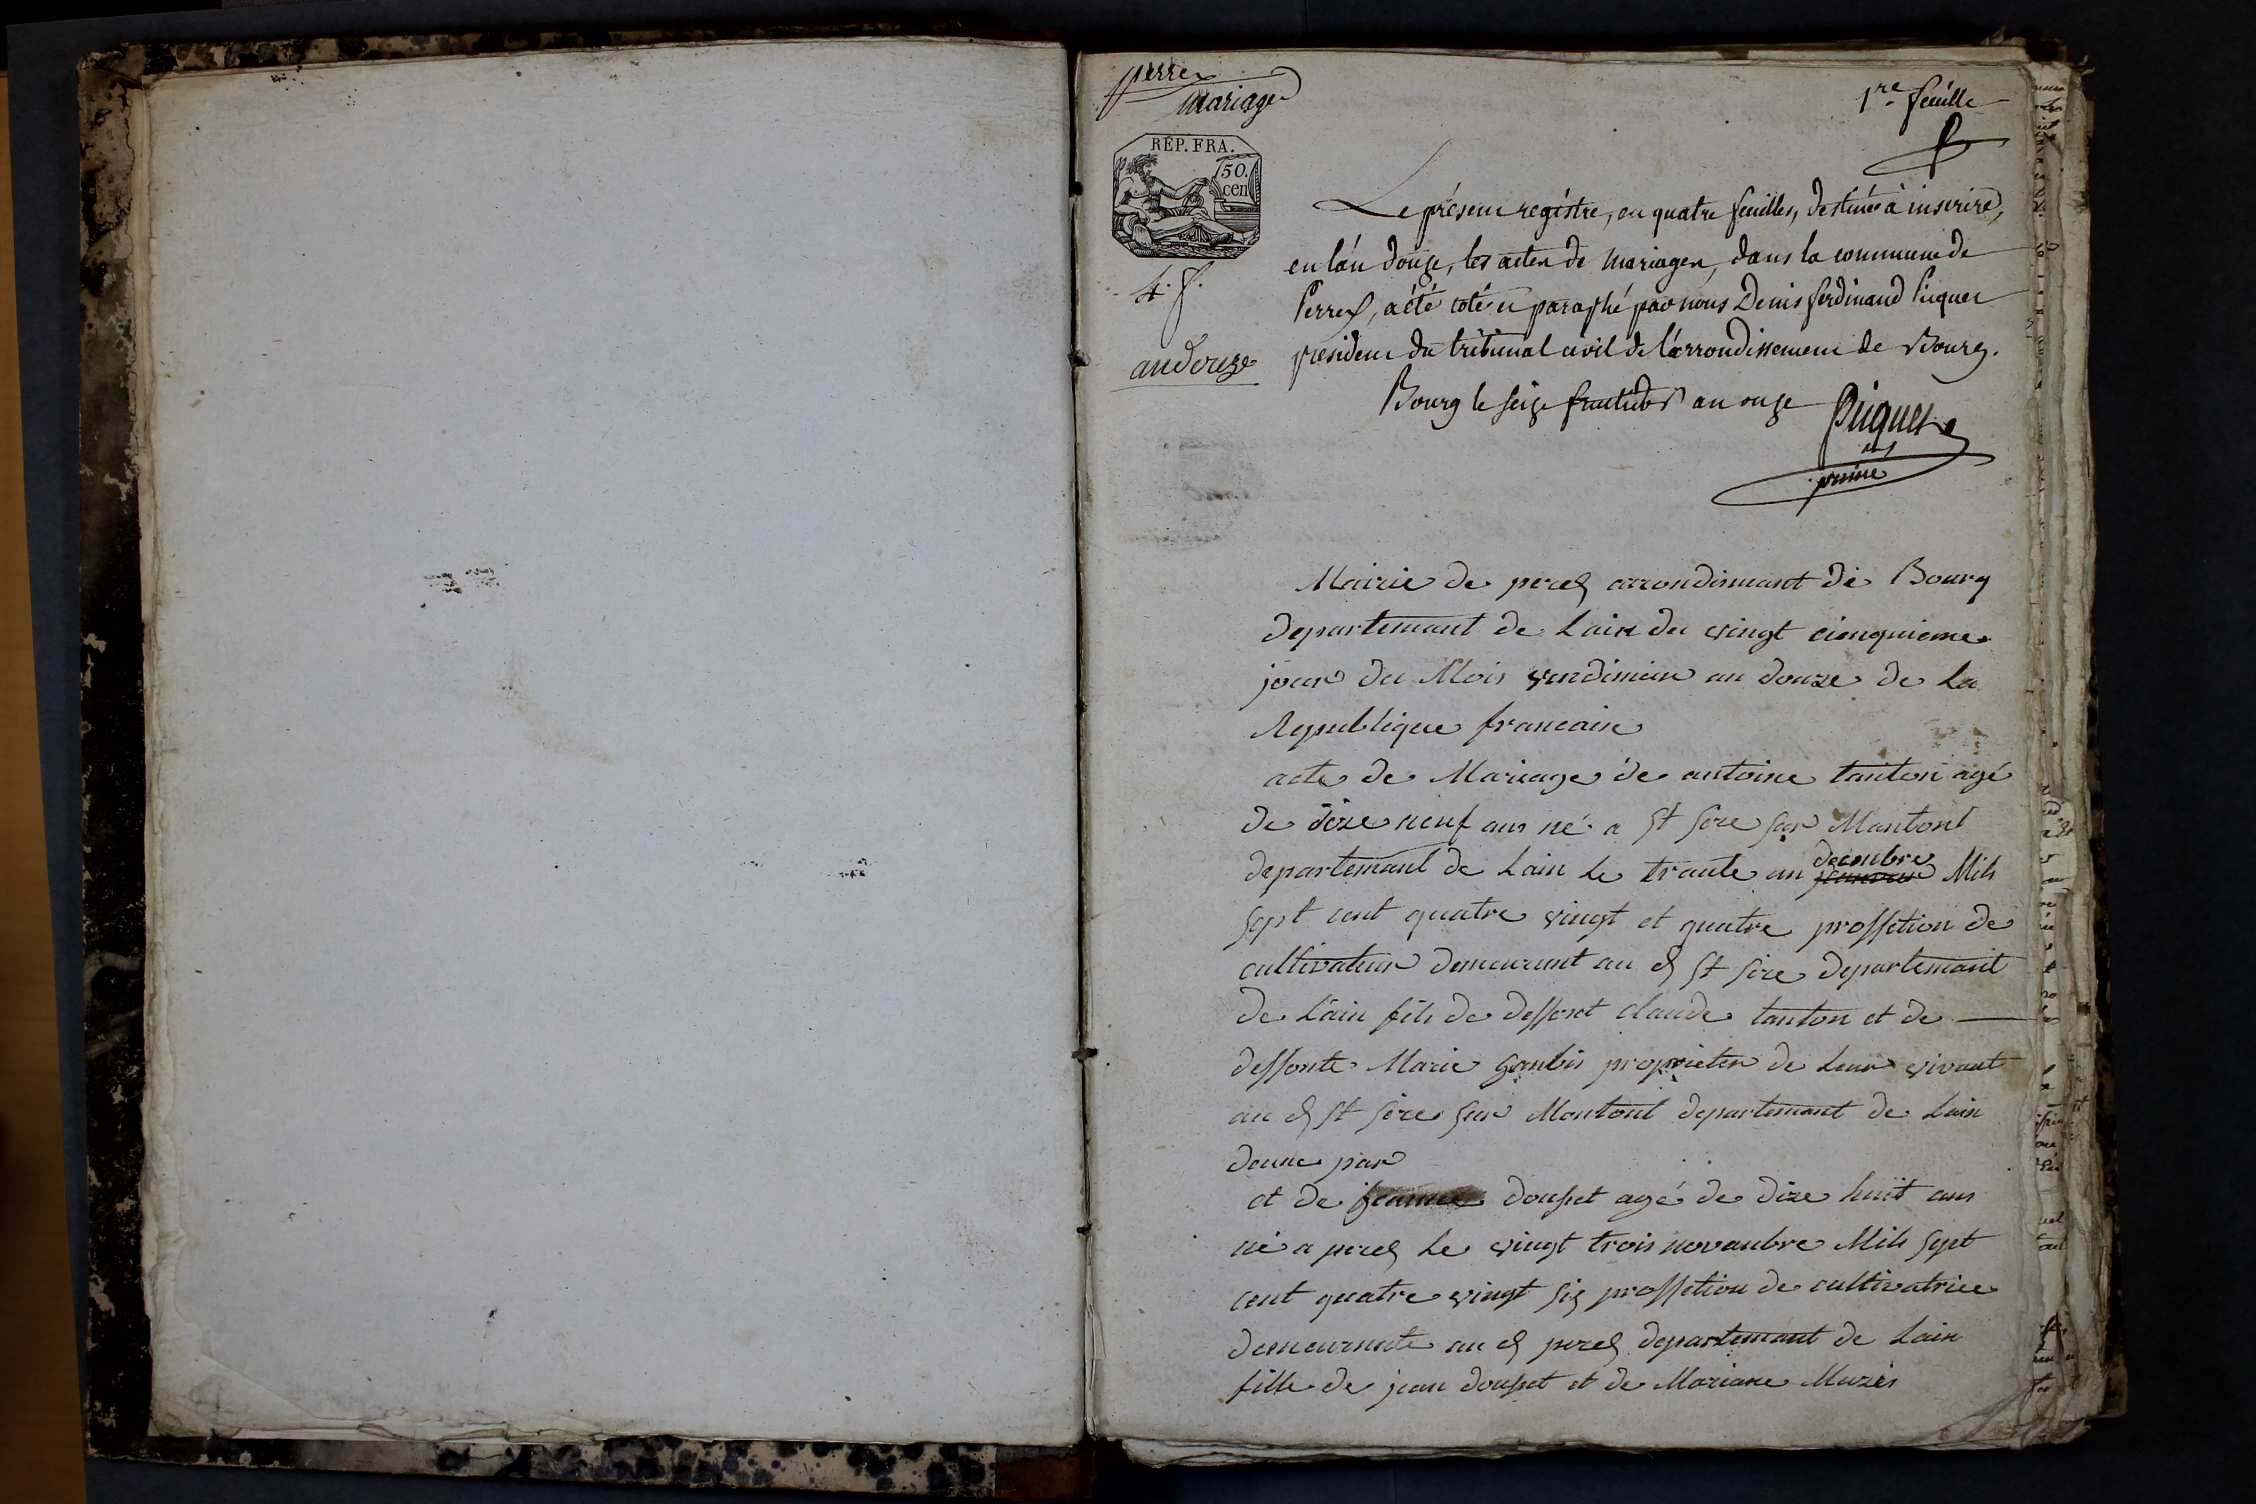 perrex
mariage
1re feuille
RÉP. FRA.
50.
cen
4. f.
an douze
Le présent registre, en quatre feuilles, destiné à inscrire,
en l'an douze, les actes de mariages, dans la commune de
Perrex, a été coté et paraphé par nous Denis ferdinand Piquet
president du tribunal civil de l'arrondissement de Bourg.
Bourg le seize fructidor an onze
Piquet
Mairie de perex arrondismant de Bourg
departemant de Lain du vingt cienquieme
jour du Mois vendimier an douze de La
Republique francaise
acte de Mariage de antoine tanton agé
de dixe neuf ans né a St sire sur Mantont
departemant de Lain Le trante un decembre Mils
sept cent quatre vingt et quatre proffetion de
cultivateur demeurant au d St sire departemant
de Lain fils de deffont claude tanton et de
deffonte Marie gonbis proprieter de Leur vivant
au d St sire sur Montont departemant de Lain
deune par
et de jeanne douset agé de dixe huit ans
né a perex Le vingt trois novanbre Mils sept
cent quatre vingt six proffetion de cultivatrice
demeurante au d perex departemant de Lain
fille de jean douset et de Mariane Muzis